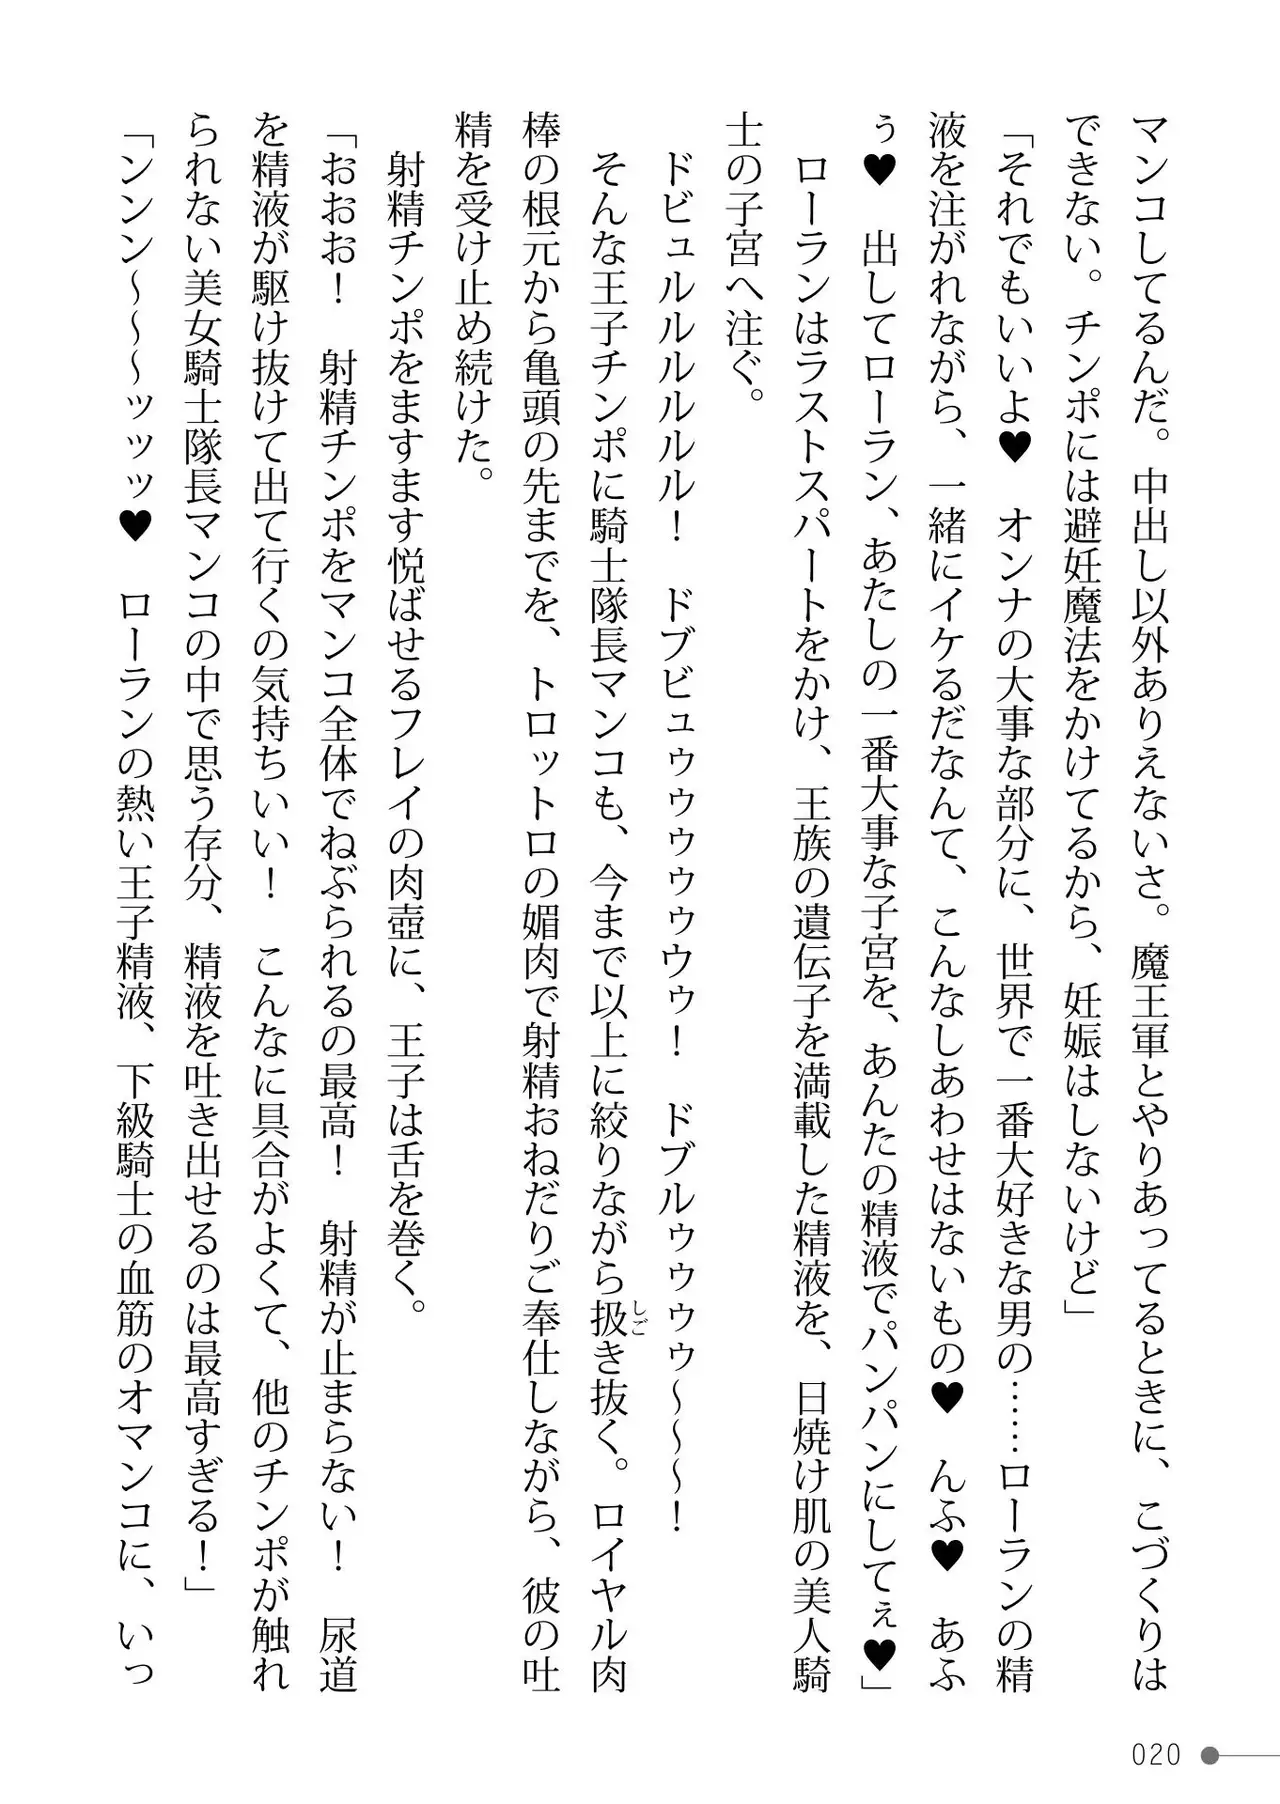 マンコしてるんだ。中出し以外ありえないさ。魔王軍とやりあってるときに、こづくりは
できない。チンポには避妊魔法をかけてるから、妊娠はしないけど」
「それでもいいよ♥　オンナの大事な部分に、世界で一番大好きな男の……ローランの精
液を注がれながら、一緒にイケるだなんて、こんなしあわせはないもの♥　んふ♥　あふ
ぅ♥　出してローラン、あたしの一番大事な子宮を、あんたの精液でパンパンにしてぇ♥」
　ローランはラストスパートをかけ、王族の遺伝子を満載した精液を、日焼け肌の美人騎
士の子宮へ注ぐ。
　ドビュルルルルルル！　ドブビュゥゥゥゥゥウゥ！　ドブルゥゥゥゥ～～～！
　そんな王子チンポに騎士隊長マンコも、今まで以上に絞りながら扱き抜く。ロイヤル肉
しご
棒の根元から亀頭の先までを、トロットロの媚肉で射精おねだりご奉仕しながら、彼の吐
精を受け止め続けた。
　射精チンポをますます悦ばせるフレイの肉壺に、王子は舌を巻く。
「おおお！　射精チンポをマンコ全体でねぶられるの最高！　射精が止まらない！　尿道
を精液が駆け抜けて出て行くの気持ちいい！　こんなに具合がよくて、他のチンポが触れ
られない美女騎士隊長マンコの中で思う存分、精液を吐き出せるのは最高すぎる！」
「ンンン～～～ッッッ♥　ローランの熱い王子精液、下級騎士の血筋のオマンコに、いっ
020